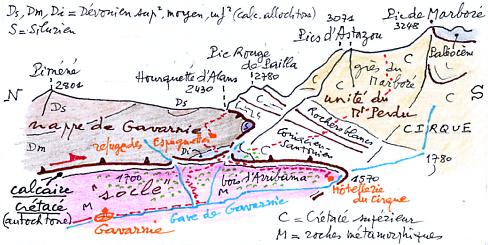 Ds, Dm, Di = Dévonien supr, moyen, infr (calc. allochtone)
S = Silurien
3071
Pic de Marboré
3248
Pics d'Astazou
Pic Rouge
de Pailla
2780
Piméné
2801
Hourquette d'Alans
2430
Paléocène
grès du
Marboré
N
S
Ds
C
C
C
C
unité du
Mt Perdu
nappe de Gavarnie
Rochers blancs
CIRQUE
Dm
refuge des Espuguettes
Di
Coniacien-
Santonien
1780
calcaire
crétacé
(autochtone)
1700
socle
bois d'Arribama
1570
M
M
Hôtellerie
du Cirque
Gave de Gavarnie
Gavarnie
C = Crétacé supérieur
M = roches métamorphiques